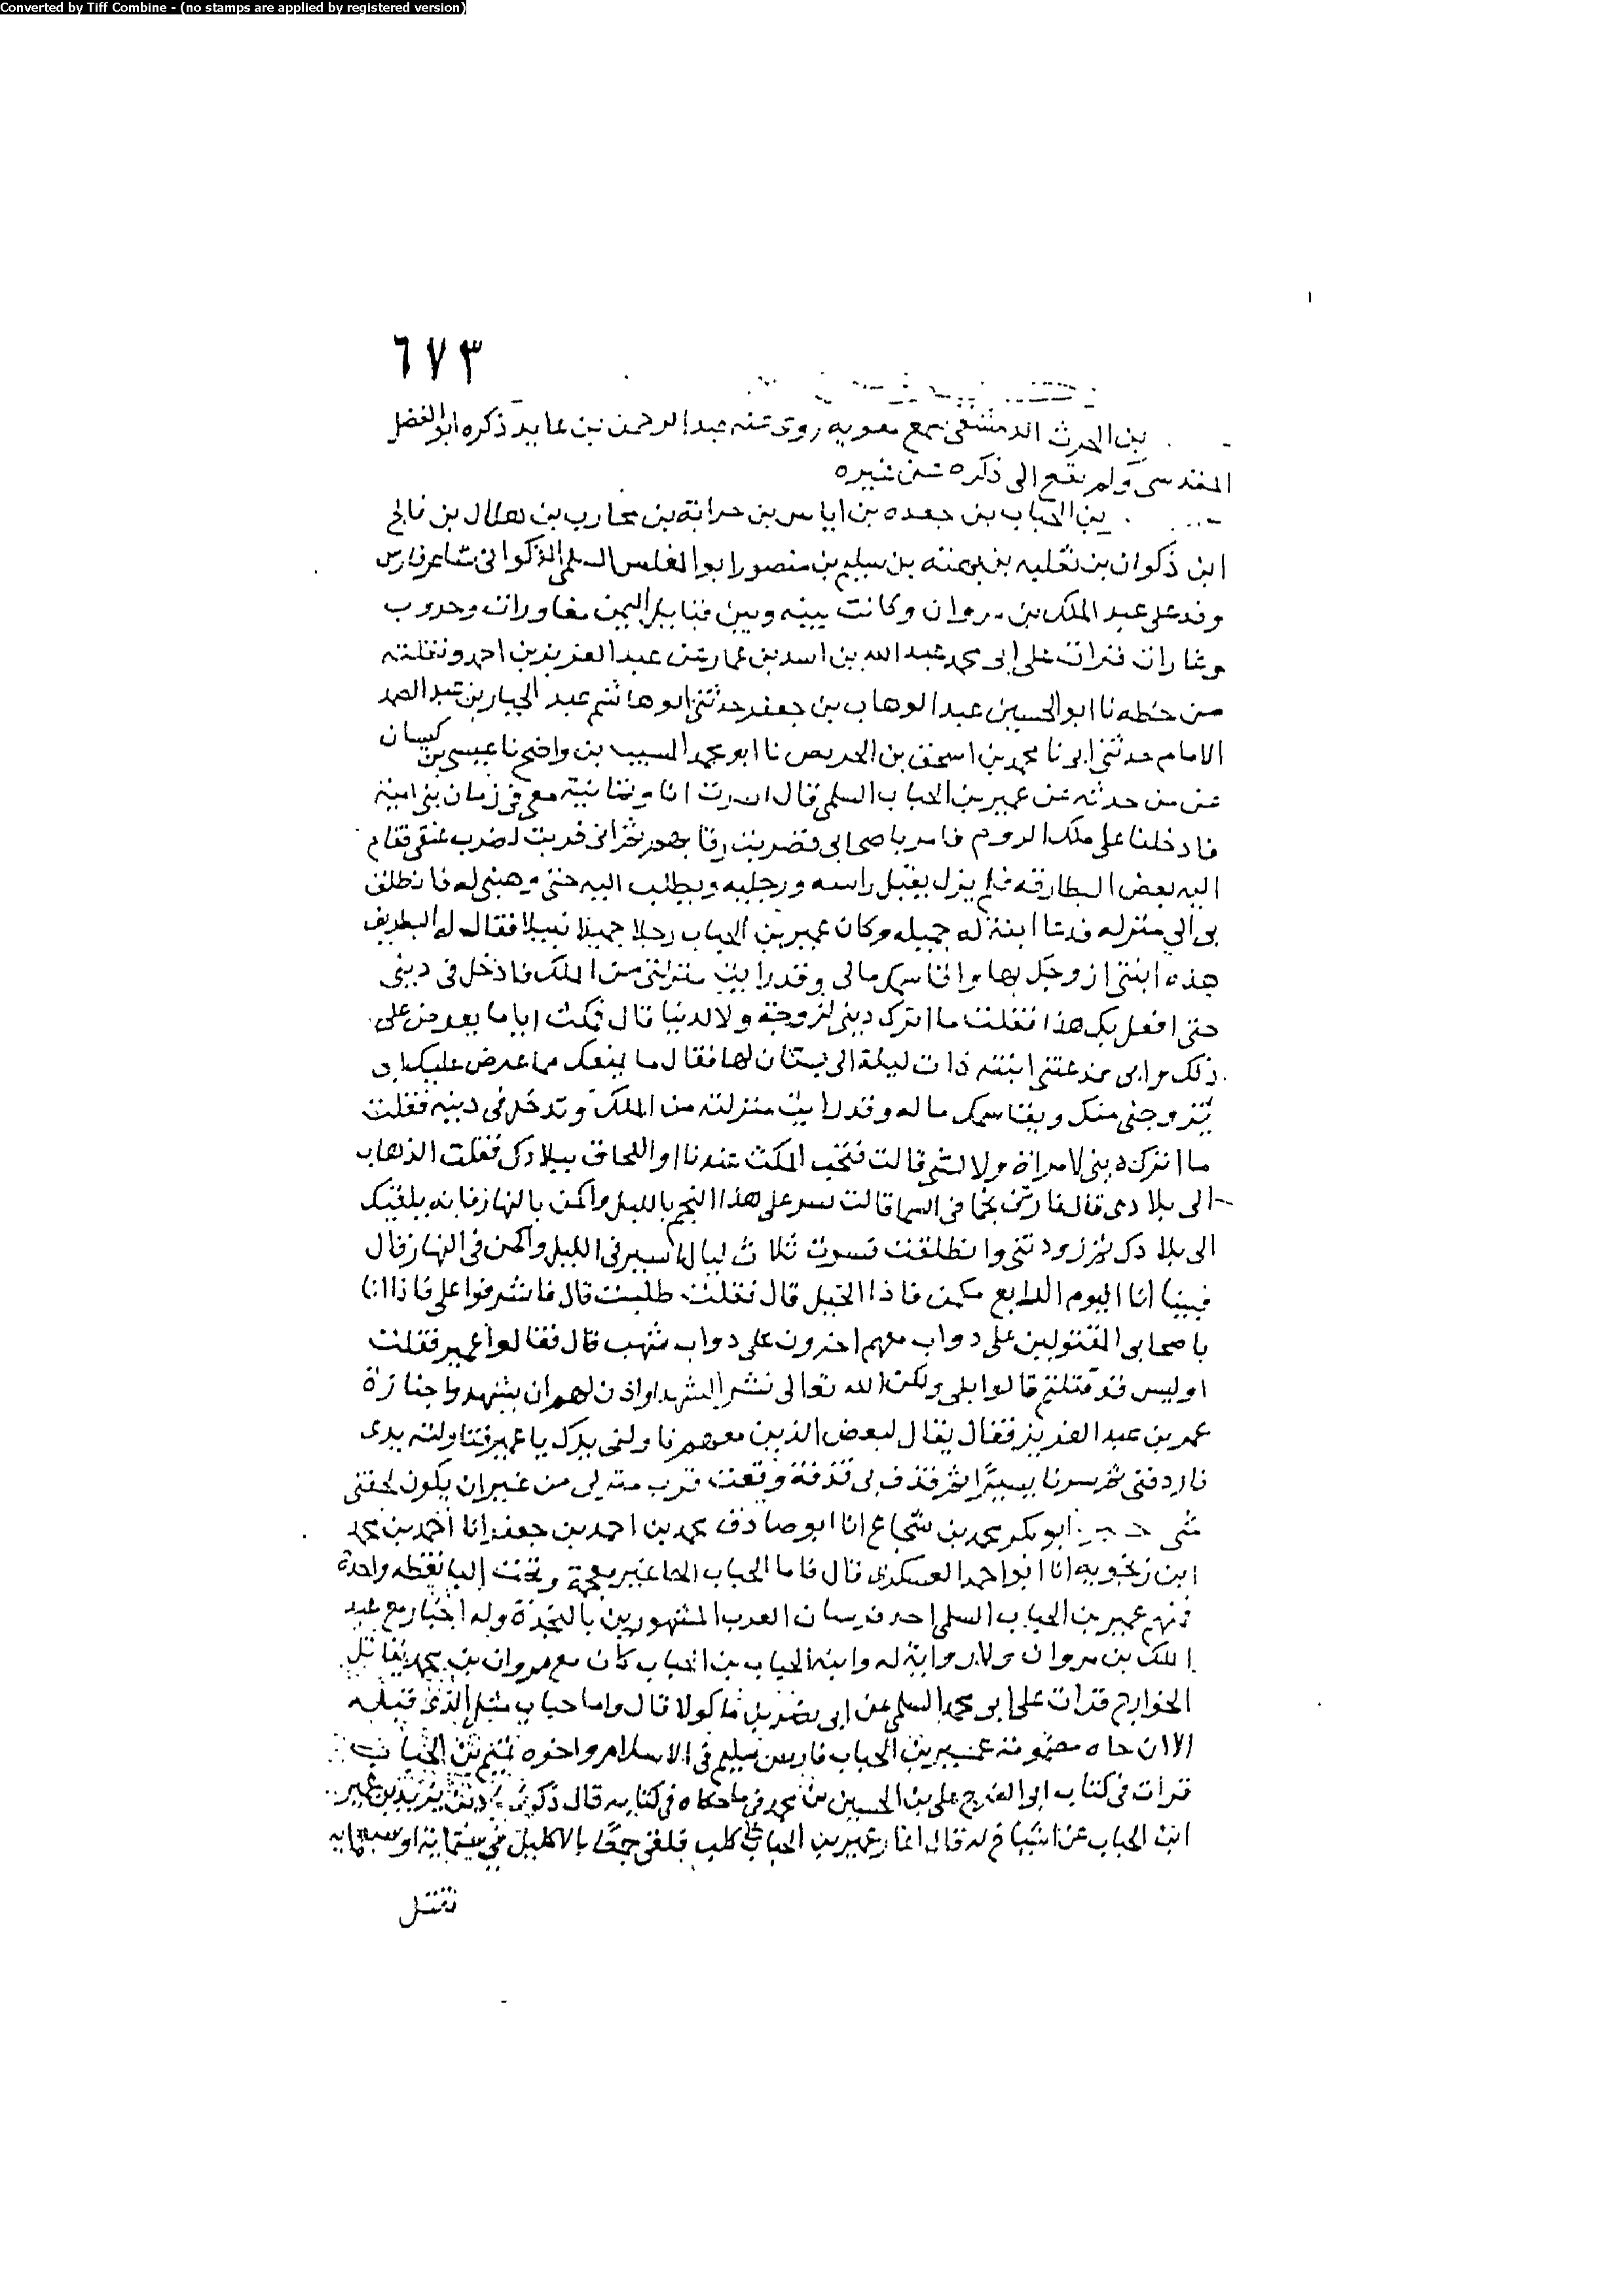 Converted by Tiff Combine - (no stamps are applied by registered version)
١
٦٧٣
بن الحرث الدمشقي سمع معويه روى عنه عبد الرحمن بن عايد ذكره ابو الفضل
المقدسي ولم يقع الى ذكره من غيره
بن الحباب بن جعده بن اياس بن حزابة بن محارب بن هلال بن فالج
ابن ذكوان بن ثعلبه بن بهثه بن سليم بن منصور ابو المغلس السلمي الذكواني شاعر فارس
وفد على عبد الملك بن مروان وكانت بينه وبين قبايل اليمن مغاورات وحروب
وغارات قرات على ابي محمد عبد الله بن اسد بن عمار عن عبد العزيز بن احمد ونقلته
من خطه نا ابو الحسين عبد الوهاب بن جعفر حدثني ابو هاشم عبد الجبار بن عبد الصمد
الامام حدثني ابو نا محمد بن اسحق بن الحريص نا ابو محمد المسيب بن واضح نا عيسى بن كيسان
عن من حدثه عن عمير بن الحباب السلمي قال اسرت انا وثمانية معي في زمان بني امية
فادخلنا على ملك الروم فامر باصحابي فضربت رقابهم ثم اني قربت لضرب عنقي فقام
اليه بعض البطارقه فلم يزل يقبل راسه ورجليه ويطلب اليه حتى وهبني له فانطلق
بي الى منزله فدعا ابنة له جميله وكان عمير بن الحباب رجلا جميلا نبيلا فقال له البطريق
هذه ابنتي ازوجك بها واقاسمك مالي وقد رايت منزلتي من الملك فادخل في ديني
حتى افعل بك هذا فقلت ما اترك ديني لزوجة ولا لدنيا قال فمكث اياما يعرض على
ذلك وابى فدعتني ابنته ذات ليلة الى بستان لها فقال ما يمنعك مما عرض عليك ابي
يتزوجني منك ويقاسمك ماله وقد رايت منزلته من الملك وتدخل في دينه فقلت
ما اترك ديني لامراة ولا لشي قالت فتحب المكث عندنا او اللحاق ببلادك فقلت الذهاب
الى بلادي قال فارتني نجما في السما قالت سر على هذا النجم بالليل واكمن بالنهار فانه يلقيك
الى بلادك ثم زودتني وانطلقت فسرت ثلاث ليال اسير في الليل واكمن في النهار قال
فبينا انا اليوم الرابع مكمن فاذا الخيل قال فقلت طلبت قال فاشرفوا على فاذا انا
باصحابي المقتولين على دواب معهم اخرون على دواب شهب قال فقالوا عمير فقلت
اوليس قد قتلتم قالوا بلى ولكن الله تعالى نشر الشهدا واذن لهم ان يشهدوا جنازة
عمر بن عبد العزيز فقال يقال لبعض الذين معهم ناولني يدك يا عمير فناولته يدي
فاردفني ثم سرنا يسيرا ثم قذف بي قذفة وقعت قرب منزلي من غير ان يكون لحقني
شي ابو بكر محمد بن شجاع انا ابو صادق محمد بن احمد بن جعفر انا احمد بن محمد
ابن زنجويه انا ابو احمد العسكري قال فاما الحباب الحا غير معجمة وتحت البا نقطه واحدة
فمنهم عمير بن الحباب السلمي احد فرسان العرب المشهورين بالنجدة وله اخبار مع عبد
الملك بن مروان ولا رواية له وابنه الحباب بن الحباب كان مع مروان بن محمد يقاتل
الخوارج قرات على ابي محمد السلمي عن ابي نصر بن ماكولا قال واما حباب مثل الذي قبله
الا ان حاه مضمومة عمير بن الحباب فارس سليم في الاسلام واخوه تميم بن الحباب
قرات في كتاب ابو الفرج علي بن الحسين بن محمد في ما حكاه في كتابه قال ذكر بن يزيد بن عمير
ابن الحباب عن اشياخ له قال اغار عمير بن الحباب على كلب فلقي جمعا بالاكليل في ستماية او سبعمايه
فقتل